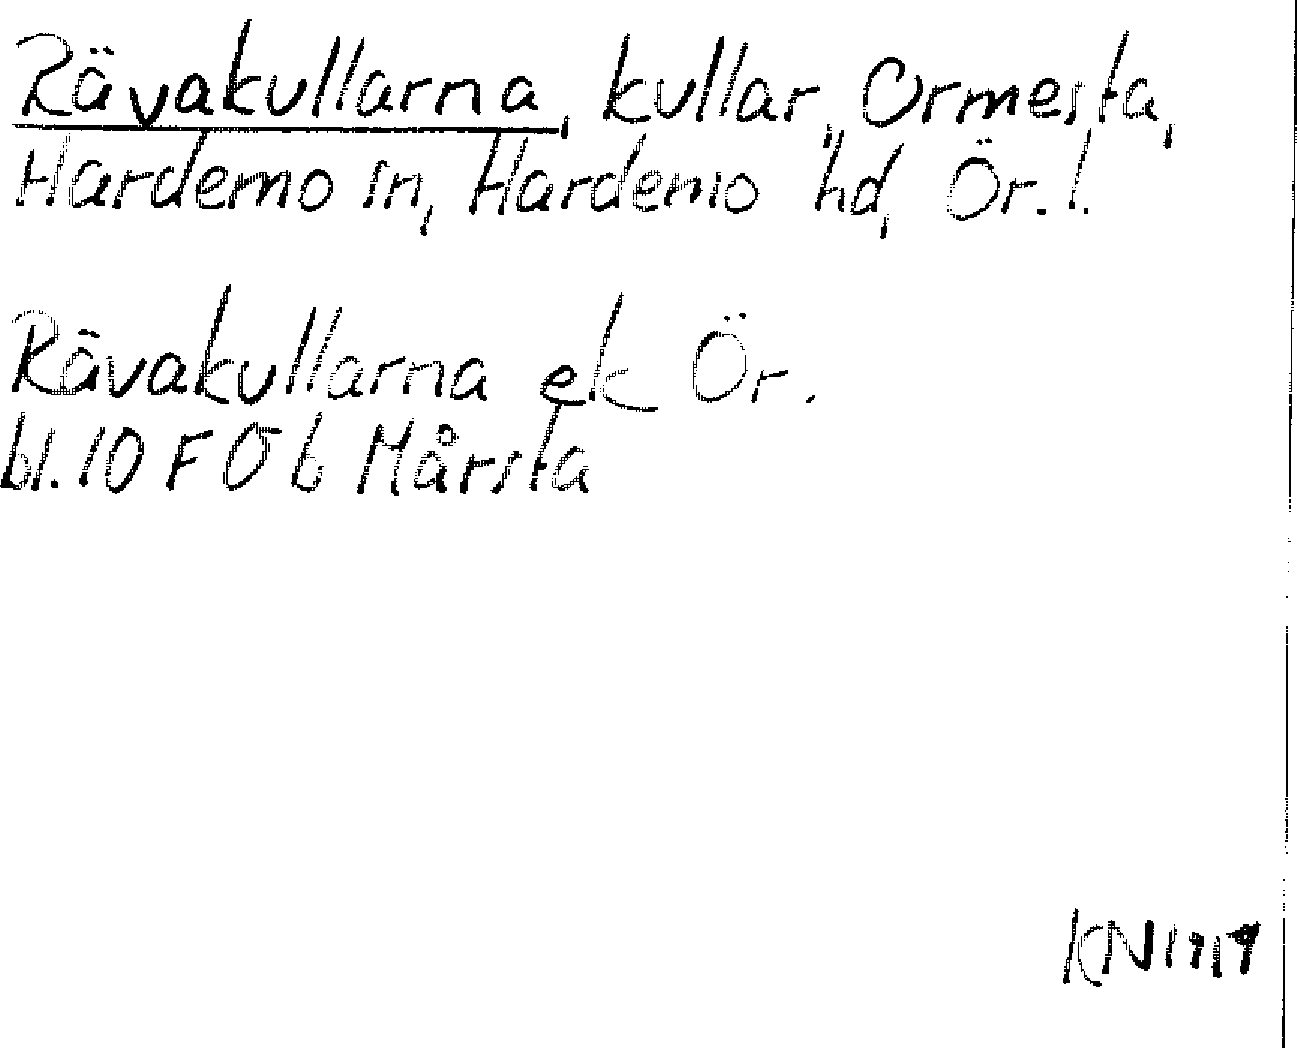 Rävakullarna, kullar, Ormesta,
Hardemo sn, Hardemo hd, Ör. l.
Rävakullarna ek Ör.
bl. 10 F 0 b Mårsta